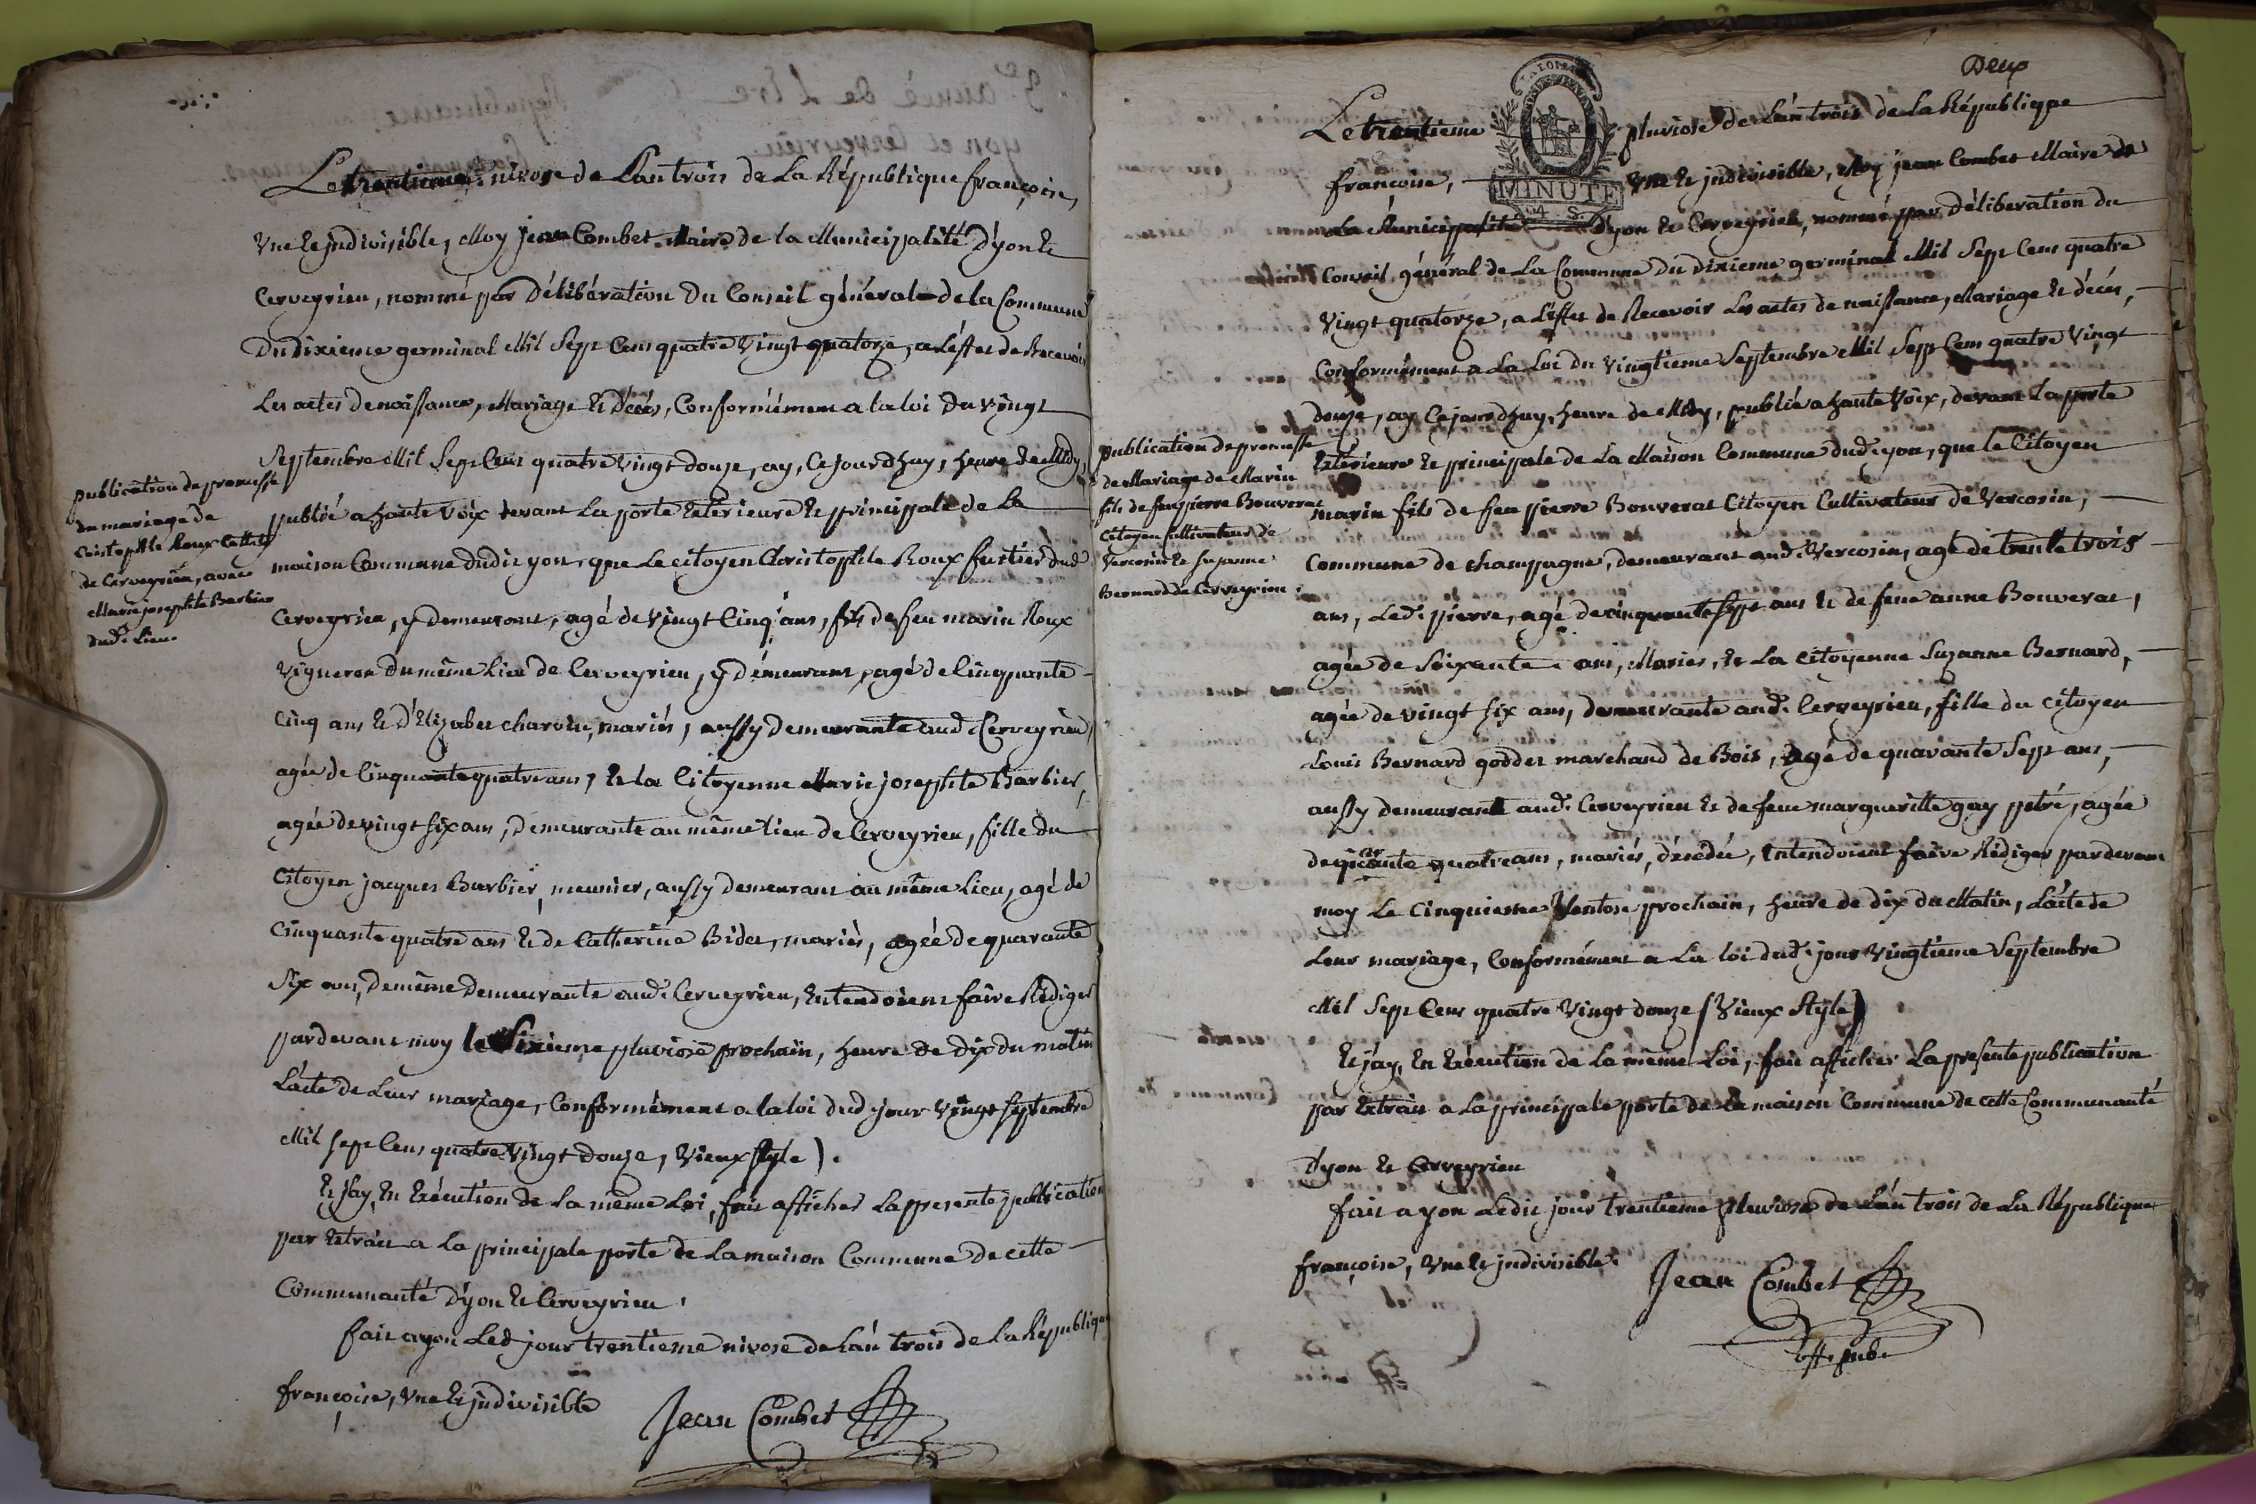 Le trentieme nivose de L'an trois de La République françoise,
Vne et jndivisible, Moy jean Combet Maire de la Municipalité d'yon et
Cerveyrieu, nommé par Délibération du Conseil général de la Commune
Du dixieme germinal Mil Sept Cens quatre Vingt quatorze, a L'éffet de Recevoir
Les actes de naissance, Mariage et Décés, Conformément a la loi du vingt
Septembre Mil Sept Cens quatre Vingt douze, ay, Cejourdhuy, heure de Midy,
publié a haute Voix devant La porte Exterieure et principale de La
maison Commune dudit yon, que Le citoyen Christophle Roux fustier dud.
Cerveyrieu, y demeurant, agé de Vingt Cinq ans, fils de feu marin Roux
Vigneron du même Lieu de Cerveyrieu, y démeurant, agé de Cinquante
Cinq ans et d'Elizabet charvin, mariés, aussy demeurante aud. Cerveyrieu,
agée de Cinquante quatre ans, et la Citoyenne Marie josephte Barbier,
agée de vingt six ans, demeurante au même lieu de Cerveyrieu, fille du
Citoyen jacques Barbier, meunier, aussy demeurant au même Lieu, agé de
Cinquante quatre ans et de Catherine Bidet, mariés, agée de quarante
Six ans, de même demeurante aud. Cerveyrieu, Entendoient faire Rédiger
pardevant moy le Sixieme pluviose prochain, heure de dix du matin
L'acte de Leur mariage, Conformément a la loi dud. jour Vingt Septembre
Mil Sept Cens quatre Vingt douze, Vieux Style).
Et j'ay, En Exécution de La même Loi, fait afficher La presente publication
par Extrait a La principale porte de La maison Commune de cette
Communauté d'yon et Cerveyrieu.
fait a yon Led. jour trentieme nivose de L'an trois de La République
françoise, Vne et jndivisible
Jean Combet
publication de promesse
du mariage de
Cristophle Roux
de Cerveyrieu, avec
Marie josephte Barbier
dud. Lieu.
Deux
MINUTE
4 S.
Le trentieme pluviose de L'an trois de La République
françoise, Vne et jndivisible, Moy jean Combet Maire de
La Municipalité d'yon et Cerveyrieu, nommé par Déliberation du
Conseil général de La Commune Du dixieme germinal Mil Sept Cens quatre
Vingt quatorze, a L'éffet de Recevoir Les actes de naissance, Mariage et décés,
Conformément a La Loi du Vingtieme Septembre Mil Sept Cens quatre Vingt
douze, ay Cejourdhuy, heure de Midy, publié a haute Voix, devant La porte
Extérieure et principale de La Maison Commune dud. yon, que le Citoyen
marin fils de feu pierre Bouverat Citoyen Cultivateur de Vercosin,
Commune de champagne, demeurant aud. Vercosin, agé de trente trois
ans, Led. pierre, agé de cinquante sept ans et de feue anne Bouverat,
agée de Soixante ans, Mariés, et La Citoyenne Suzanne Bernard,
agée de vingt six ans, demeurante aud. Cerveyrieu, fille du Citoyen
Louis Bernard goddet marchand de Bois, agé de quarante Sept ans,
aussy demeurant aud. Cerveyrieu et de feue margueritte gay agée
de quatre ans, mariés, décédée, Entendoient faire Rédiger pardevant
moy Le Cinquieme Ventose prochain, heure de dix du Matin, L'acte de
Leur mariage, Conformément a La loi dud. jour Vingtieme Septembre
Mil Sept Cens quatre Vingt douze (Vieux Style)
Et j'ay, En Exécution de La même Loi, fait afficher La presente publication
par Extrait a La principale porte de La maison Commune de cette Communauté
d'yon et Cerveyrieu
fait a yon Ledit jour trentieme pluviose de L'an trois de La République
françoise, Vne et jndivisible.
Jean Combet
off. pub.
publication de promesse
de Mariage de Marin
fils de feu pierre Bouverat
Citoyen Cultivateur de
Vercosin et Suzanne
Bernard de Cerveyrieu.